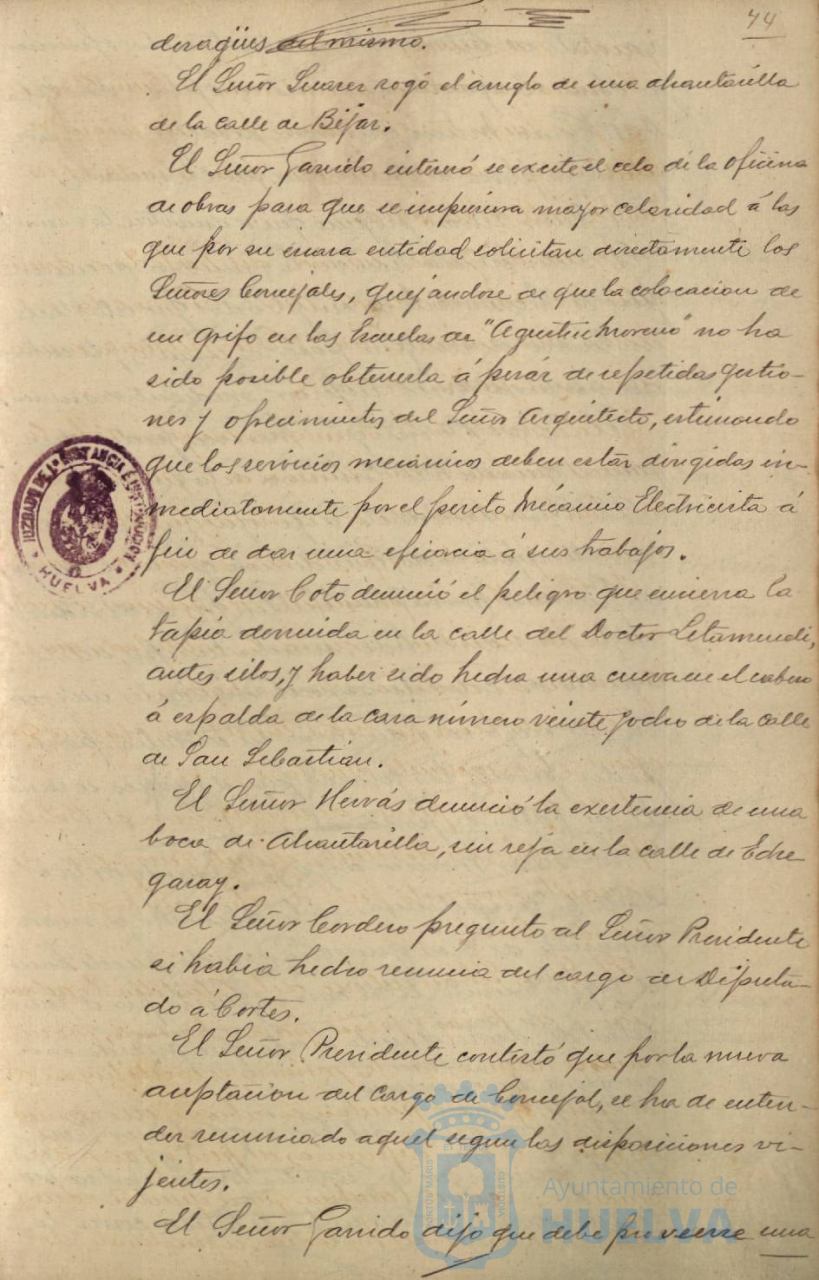 44
desagües del mismo.
El Señor Suarez rogó el arreglo de una alcantarilla
de la calle de Béjar.
El Señor Garrido interesó se excite el celo de la oficina
de obras para que se imprima mayor celeridad á las
que por su escasa entidad solicitan directamente los
Señores Concejales, quejándose de que la colocacion de
un grifo en las Escuelas de "Agustin Moreno" no ha
sido posible obtenerla á pesár de repetidas gestio-
nes y ofrecimientos del Señor Arquitecto, estimando
que los servicios mecánicos deben estár dirigidos in-
mediatamente por el perito Mecánico Electricista á
fin de dar una eficacia á sus trabajos.
El Señor Coto denunció el peligro que encierra la
tapia derruida en la calle del Doctor Letamendi,
antes silos, y haber sido hecha una cueva en el cabezo
á espalda de la casa número veinte y ocho de la calle
de San Sebastián.
El Señor Hervás denunció la existencia de una
boca de alcantarilla, sin reja en la calle de Eche
garay.
El Señor Cordero pregunto al Señor Presidente
si habia hecho renuncia del cargo de Diputa-
do á Cortes.
El Señor Presidente contestó que por la nueva
aceptacion del cargo de Concejal, se ha de enten-
der renunciado aquel segun las disposiciones vi-
jentes.
El Señor Garrido dijo que debe proveerse una
JUZGADO DE 1ª INSTANCIA É INSTRUCCION
HUELVA
Ayuntamiento de
HUELVA